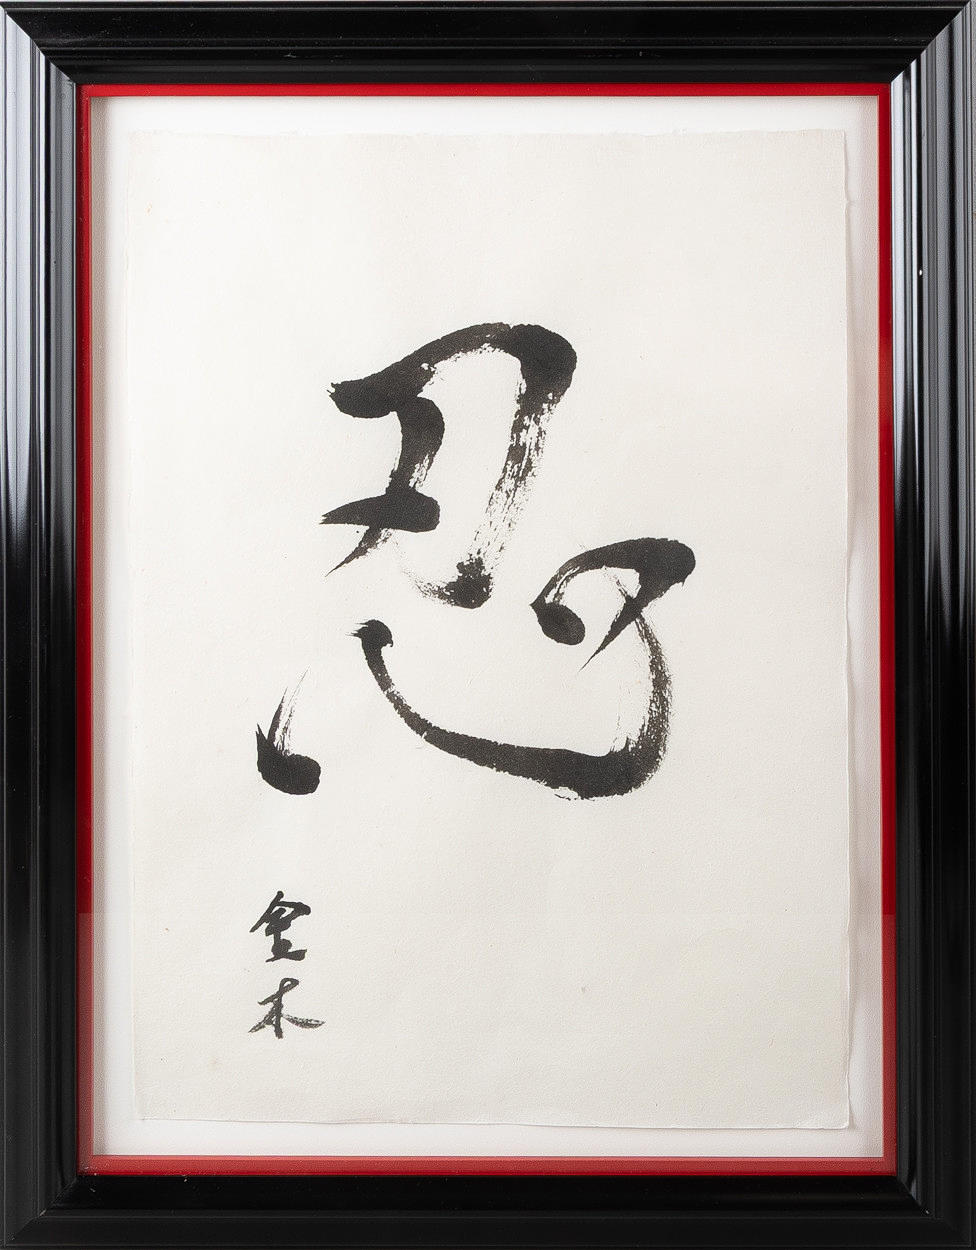 忍
金木